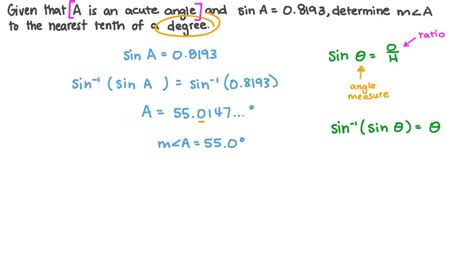 Given that [A is an acute angle] and sin A = 0.8193, determine m∠A
to the nearest tenth of a degree.
sin A = 0.8193
sin⁻¹ (sin A) = sin⁻¹ (0.8193)
A = 55.0147...°
m∠A = 55.0°
ratio
sin θ = O/H
angle
measure
sin⁻¹ (sin θ) = θ